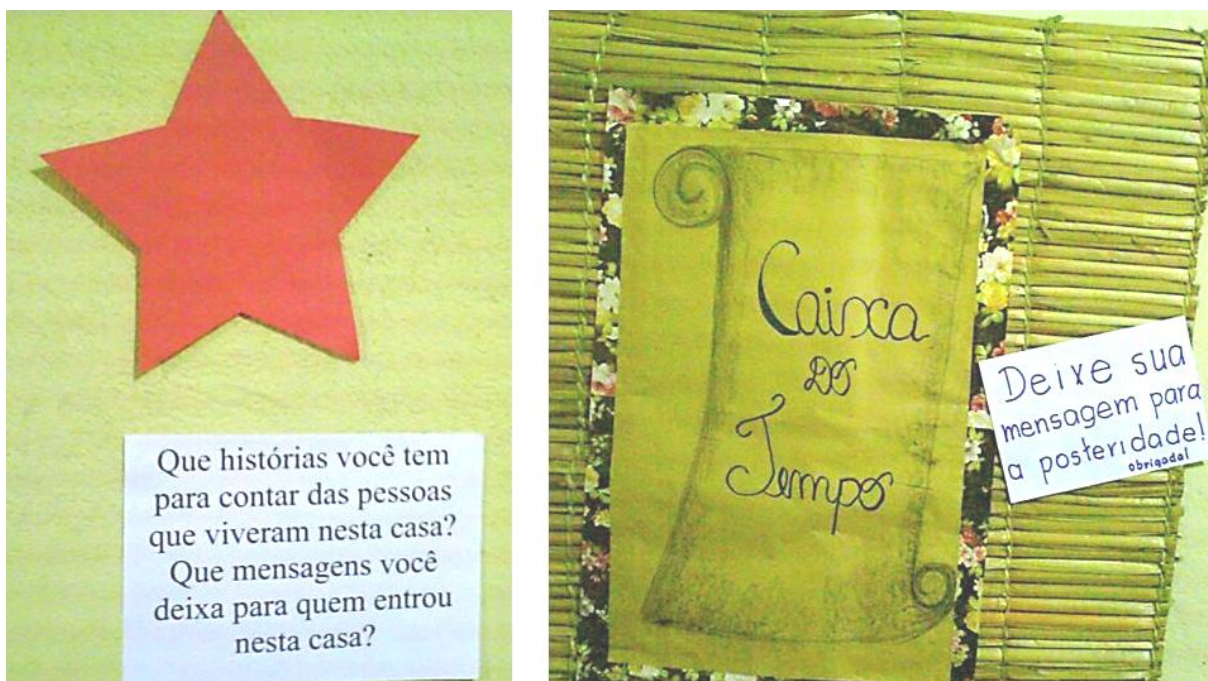 Que histórias você tem
para contar das pessoas
que viveram nesta casa?
Que mensagens você
deixa para quem entrou
nesta casa?
Caixa
do
Tempo
Deixe sua
mensagem para
a posteridade!
obrigada!